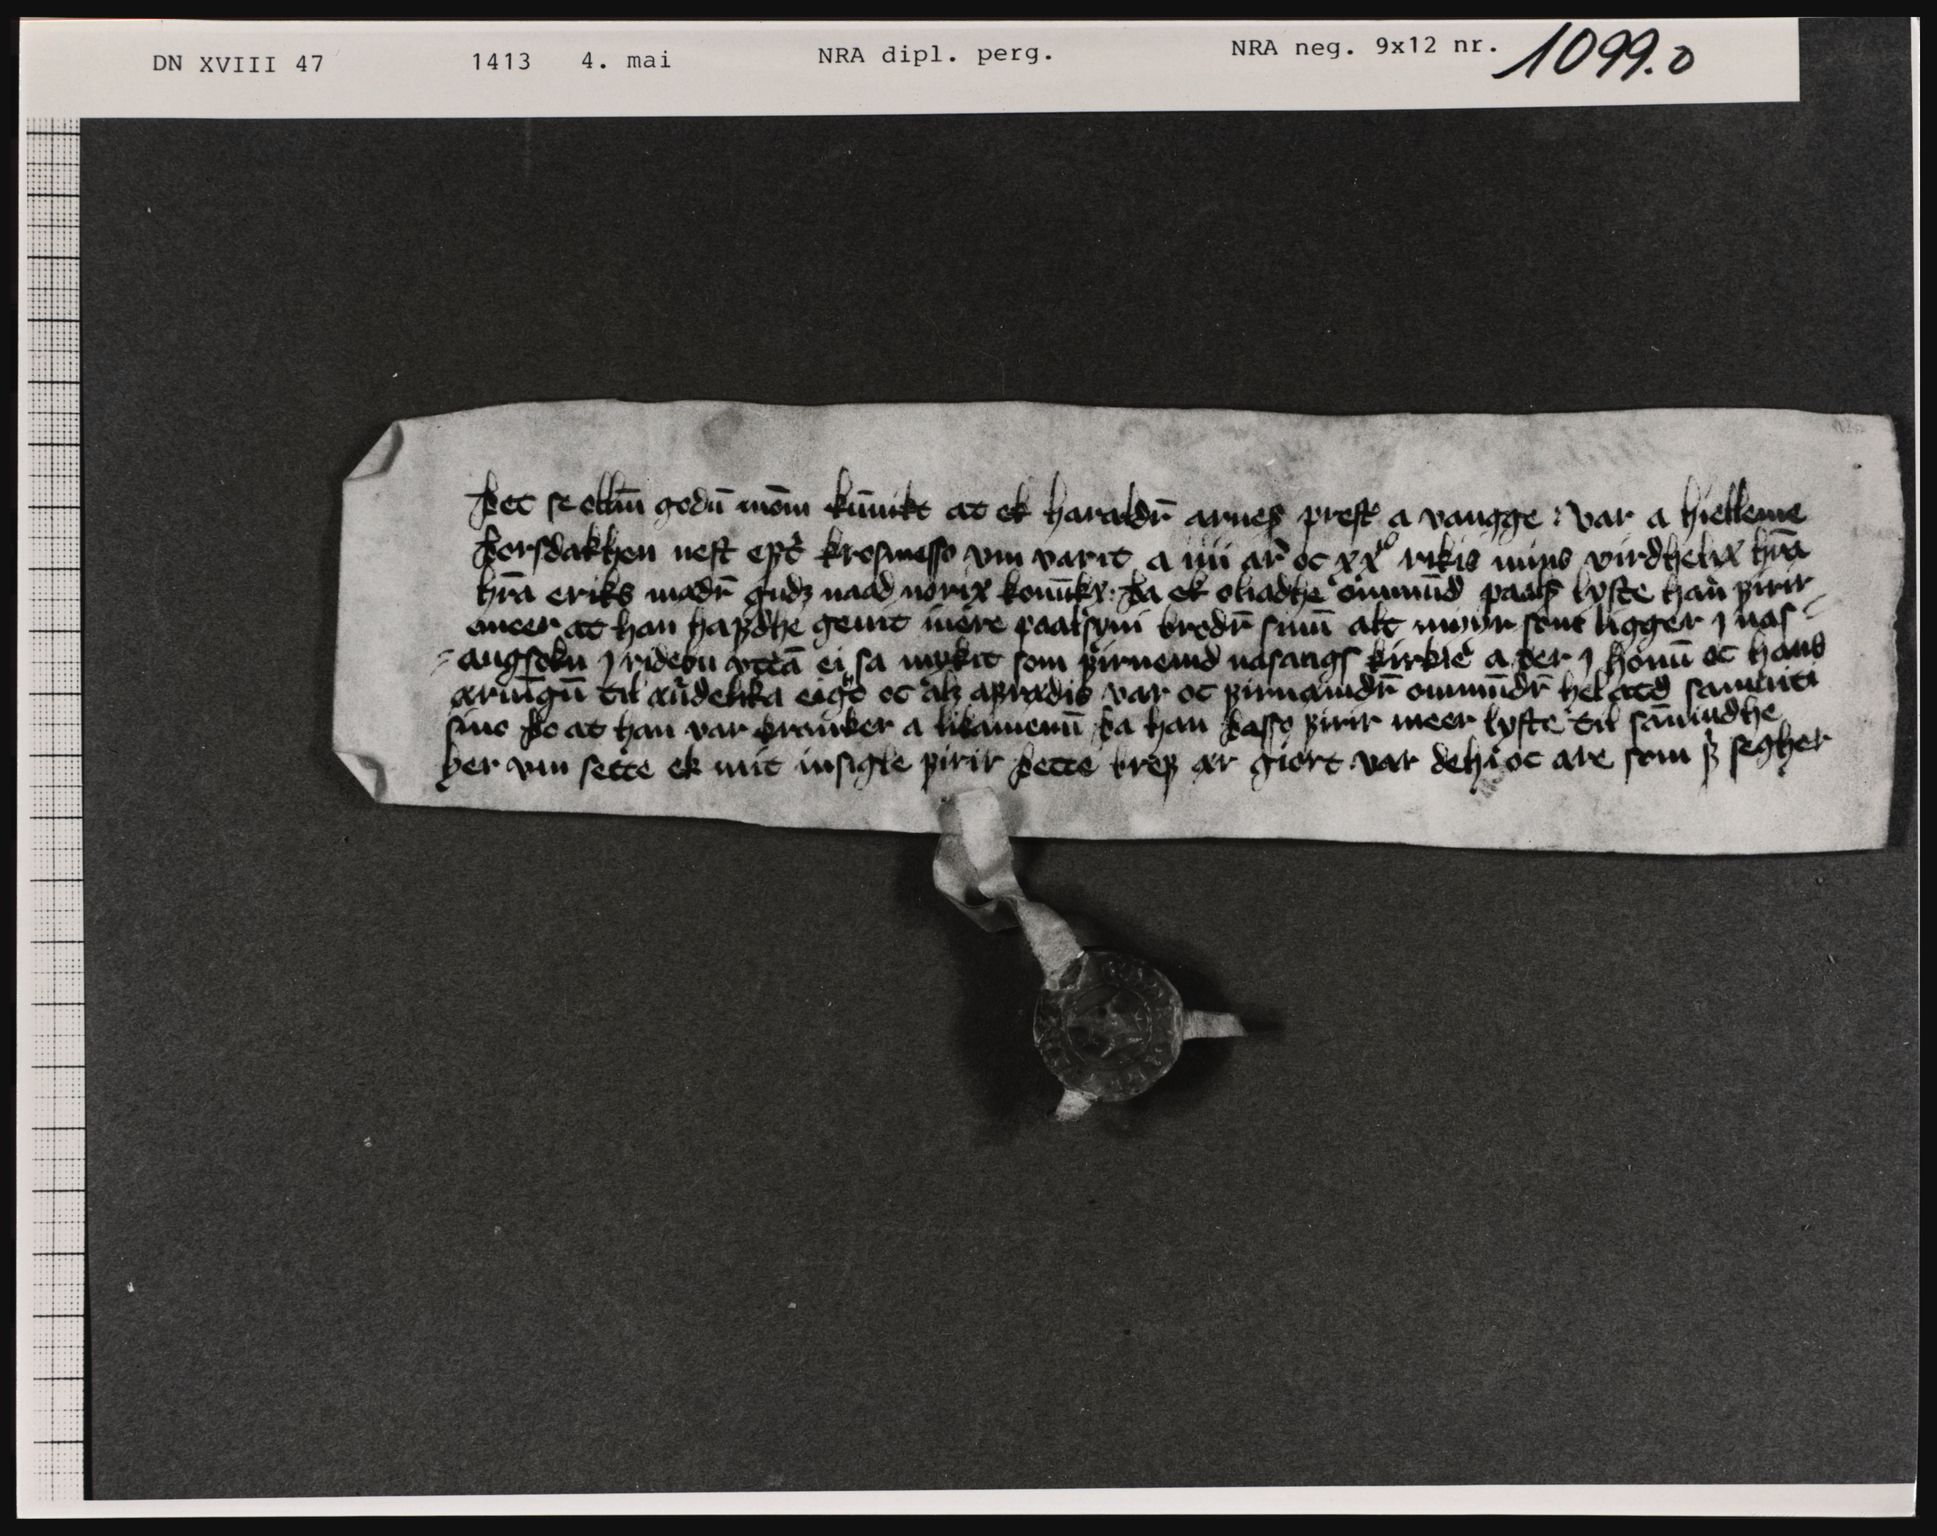 DN XVIII 47 1413 4. mai NRA dipl. perg. NRA neg. 9x12 nr. 1099.0
Þet se ollū godū mōm kūnikt at ek haraldr̄ arneſ preſtꝛ a vangge : var a hielleme
þorsdakhen neſt epſ̃ kroſmeſſo vm varit a iiii ar oc xx° rikis mijns virdhelix hr̄a
hr̄a eriks medr̄ gudz naad norix konūkx : þa ek oliadhe ommūd paals lyſte han firir
meer at han hafdhe geuit mere paalſyni brodr̄ sinū alt mijyr som ligger j nas⸗
⸗angſokn j ridebu vtḡa ei sa mykit som firnemd nasangſ kirkie a þer j honū oc hans
æruīgū til æūdelika eigo oc alz afrædis var oc firnamdr̄ ommūdr̄ helatḡ samuiti
sino þo at han var kranker a likamenū þa han þasso firir meer lyſte til sānindhe
her vm sette ek mit insigle firir þette bref ær giort var deḡi oc are som ſ̄ segher